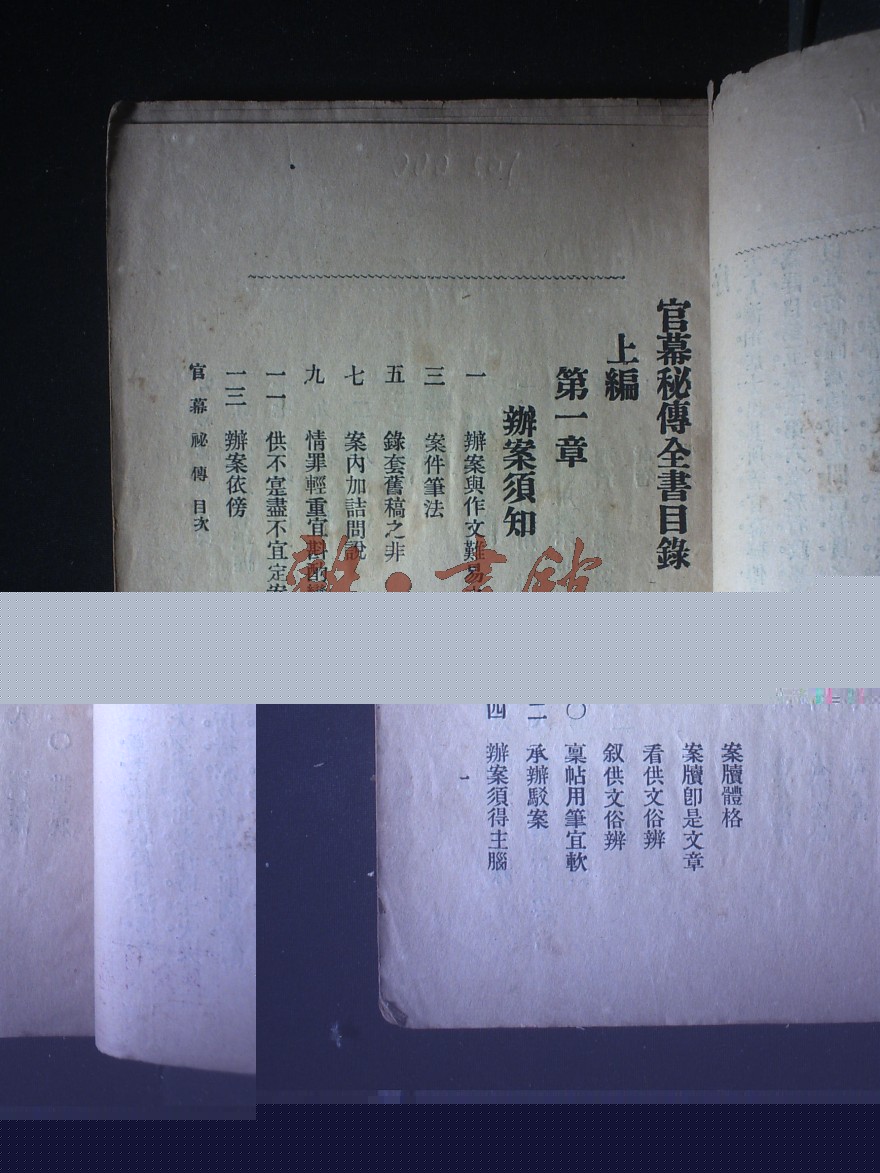 官幕秘傳全書目錄
上編
第一章
辦案須知
一 辦案與作文難易
三 案件筆法
五 錄套舊稿之非
七 案內加詰問說
九 情罪輕重宜斟酌
一一 供不寔盡不宜定案
一三 辦案依傍
官幕祕傳 目次
案牘體格
案牘卽是文章
看供文俗辨
叙供文俗辨
〇 稟帖用筆宜軟
二 承辦駁案
四 辦案須得主腦
一